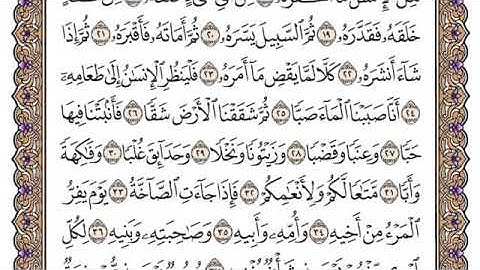 خَلَقَهُۥ فَقَدَّرَهُۥ ١٩ ثُمَّ ٱلسَّبِيلَ يَسَّرَهُۥ ٢٠ ثُمَّ أَمَاتَهُۥ فَأَقۡبَرَهُۥ ٢١ ثُمَّ إِذَا
شَآءَ أَنشَرَهُۥ ٢٢ كَلَّا لَمَّا يَقۡضِ مَآ أَمَرَهُۥ ٢٣ فَلۡيَنظُرِ ٱلۡإِنسَٰنُ إِلَىٰ طَعَامِهِۦٓ
٢٤ أَنَّا صَبَبۡنَا ٱلۡمَآءَ صَبّٗا ٢٥ ثُمَّ شَقَقۡنَا ٱلۡأَرۡضَ شَقّٗا ٢٦ فَأَنۢبَتۡنَا فِيهَا
حَبّٗا ٢٧ وَعِنَبٗا وَقَضۡبٗا ٢٨ وَزَيۡتُونٗا وَنَخۡلٗا ٢٩ وَحَدَآئِقَ غُلۡبٗا ٣٠ وَفَٰكِهَةٗ
وَأَبّٗا ٣١ مَّتَٰعٗا لَّكُمۡ وَلِأَنۡعَٰمِكُمۡ ٣٢ فَإِذَا جَآءَتِ ٱلصَّآخَّةُ ٣٣ يَوۡمَ يَفِرُّ
ٱلۡمَرۡءُ مِنۡ أَخِيهِ ٣٤ وَأُمِّهِۦ وَأَبِيهِ ٣٥ وَصَٰحِبَتِهِۦ وَبَنِيهِ ٣٦ لِكُلِّ